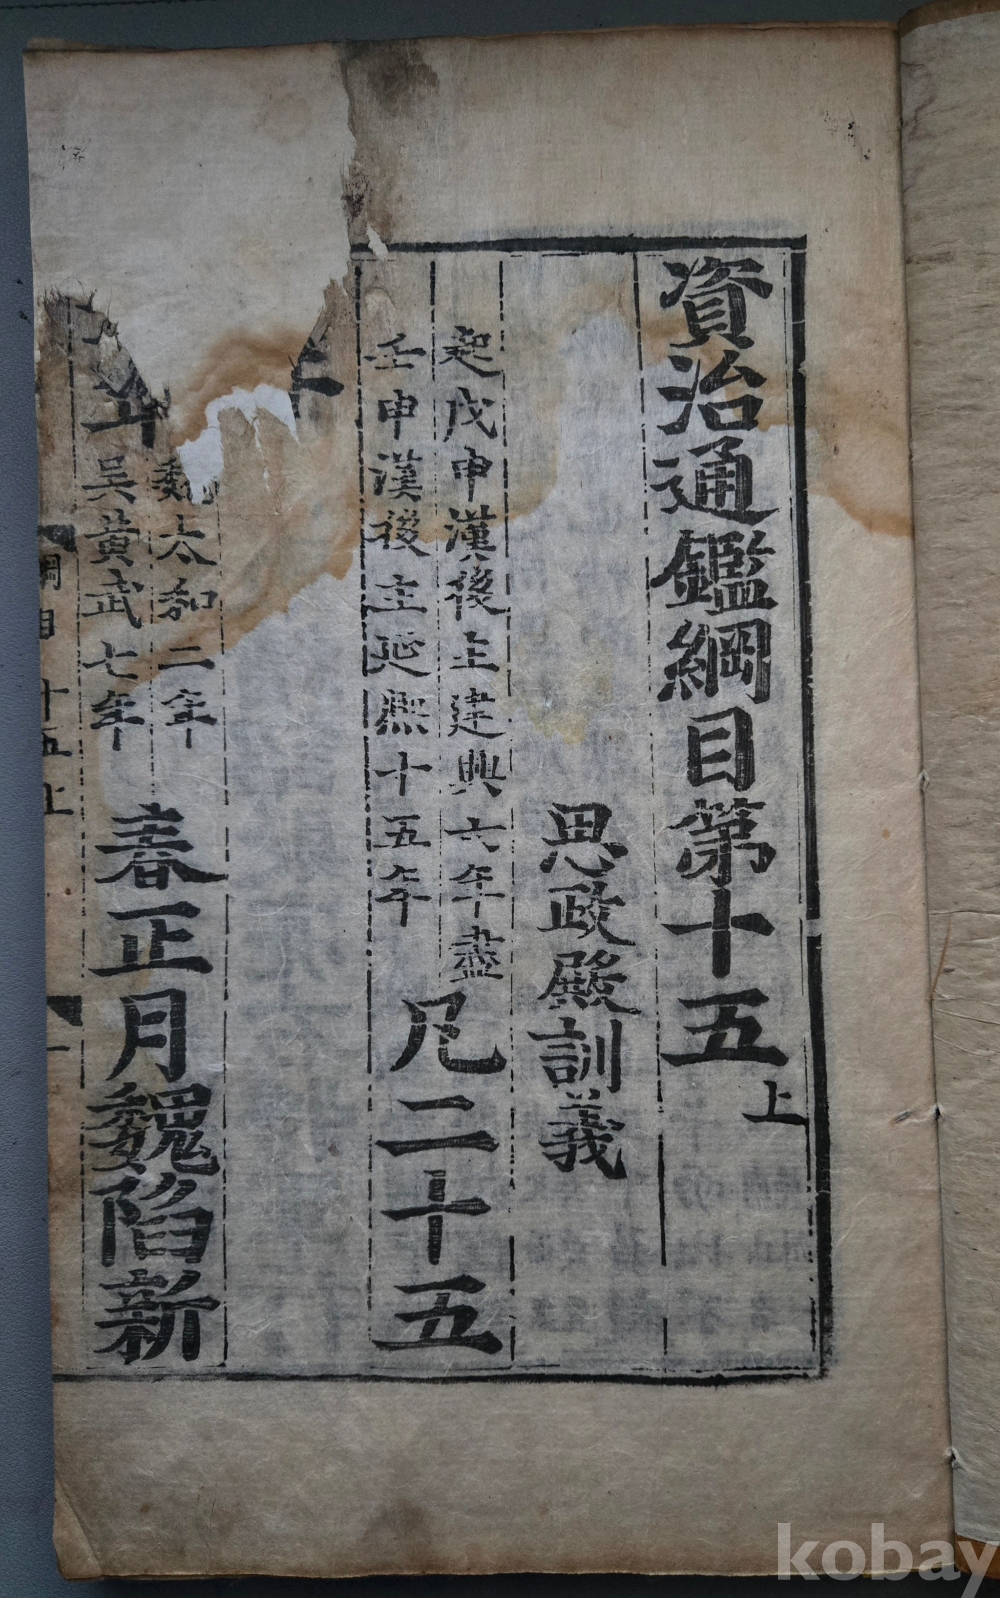 資治通鑑綱目第十五上
思政殿訓義
起戊申漢後主建興六年盡
壬申漢後主延熙十五年
凡二十五
年
魏太和二年
吳黃武七年
春正月魏陷新
綱目十五上
一
kobay